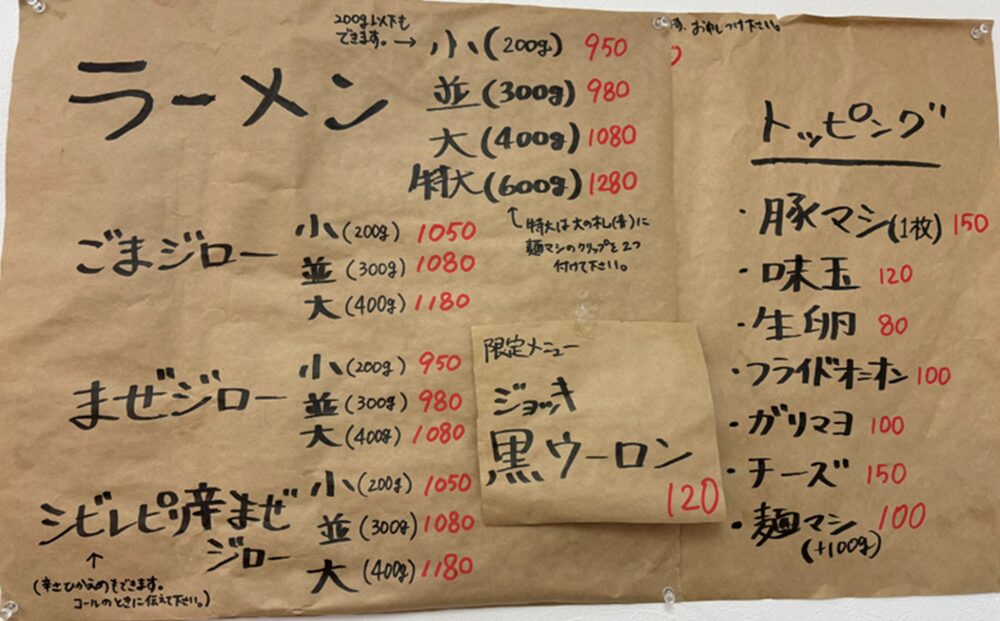 200g以下も
できます。→
ラーメン
小(200g) 950
並(300g) 980
大(400g) 1080
特大(600g) 1280
↑特大は大の札(青)に
麺マシのクリップを2つ
付けて下さい。
ごまジロー
小(200g) 1050
並(300g) 1080
大(400g) 1180
まぜジロー
小(200g) 950
並(300g) 980
大(400g) 1080
シビレピリ辛まぜ
ジロー
小(200g) 1050
並(300g) 1080
大(400g) 1180
↑
(辛さひかえめもできます。
コールのときに伝えて下さい。)
限定メニュー
ジョッキ
黒ウーロン
120
す。お申しつけ下さい。
トッピング
・豚マシ(1枚) 150
・味玉 120
・生卵 80
・フライドオニオン 100
・ガリマヨ 100
・チーズ 150
・麺マシ 100
(+100g)